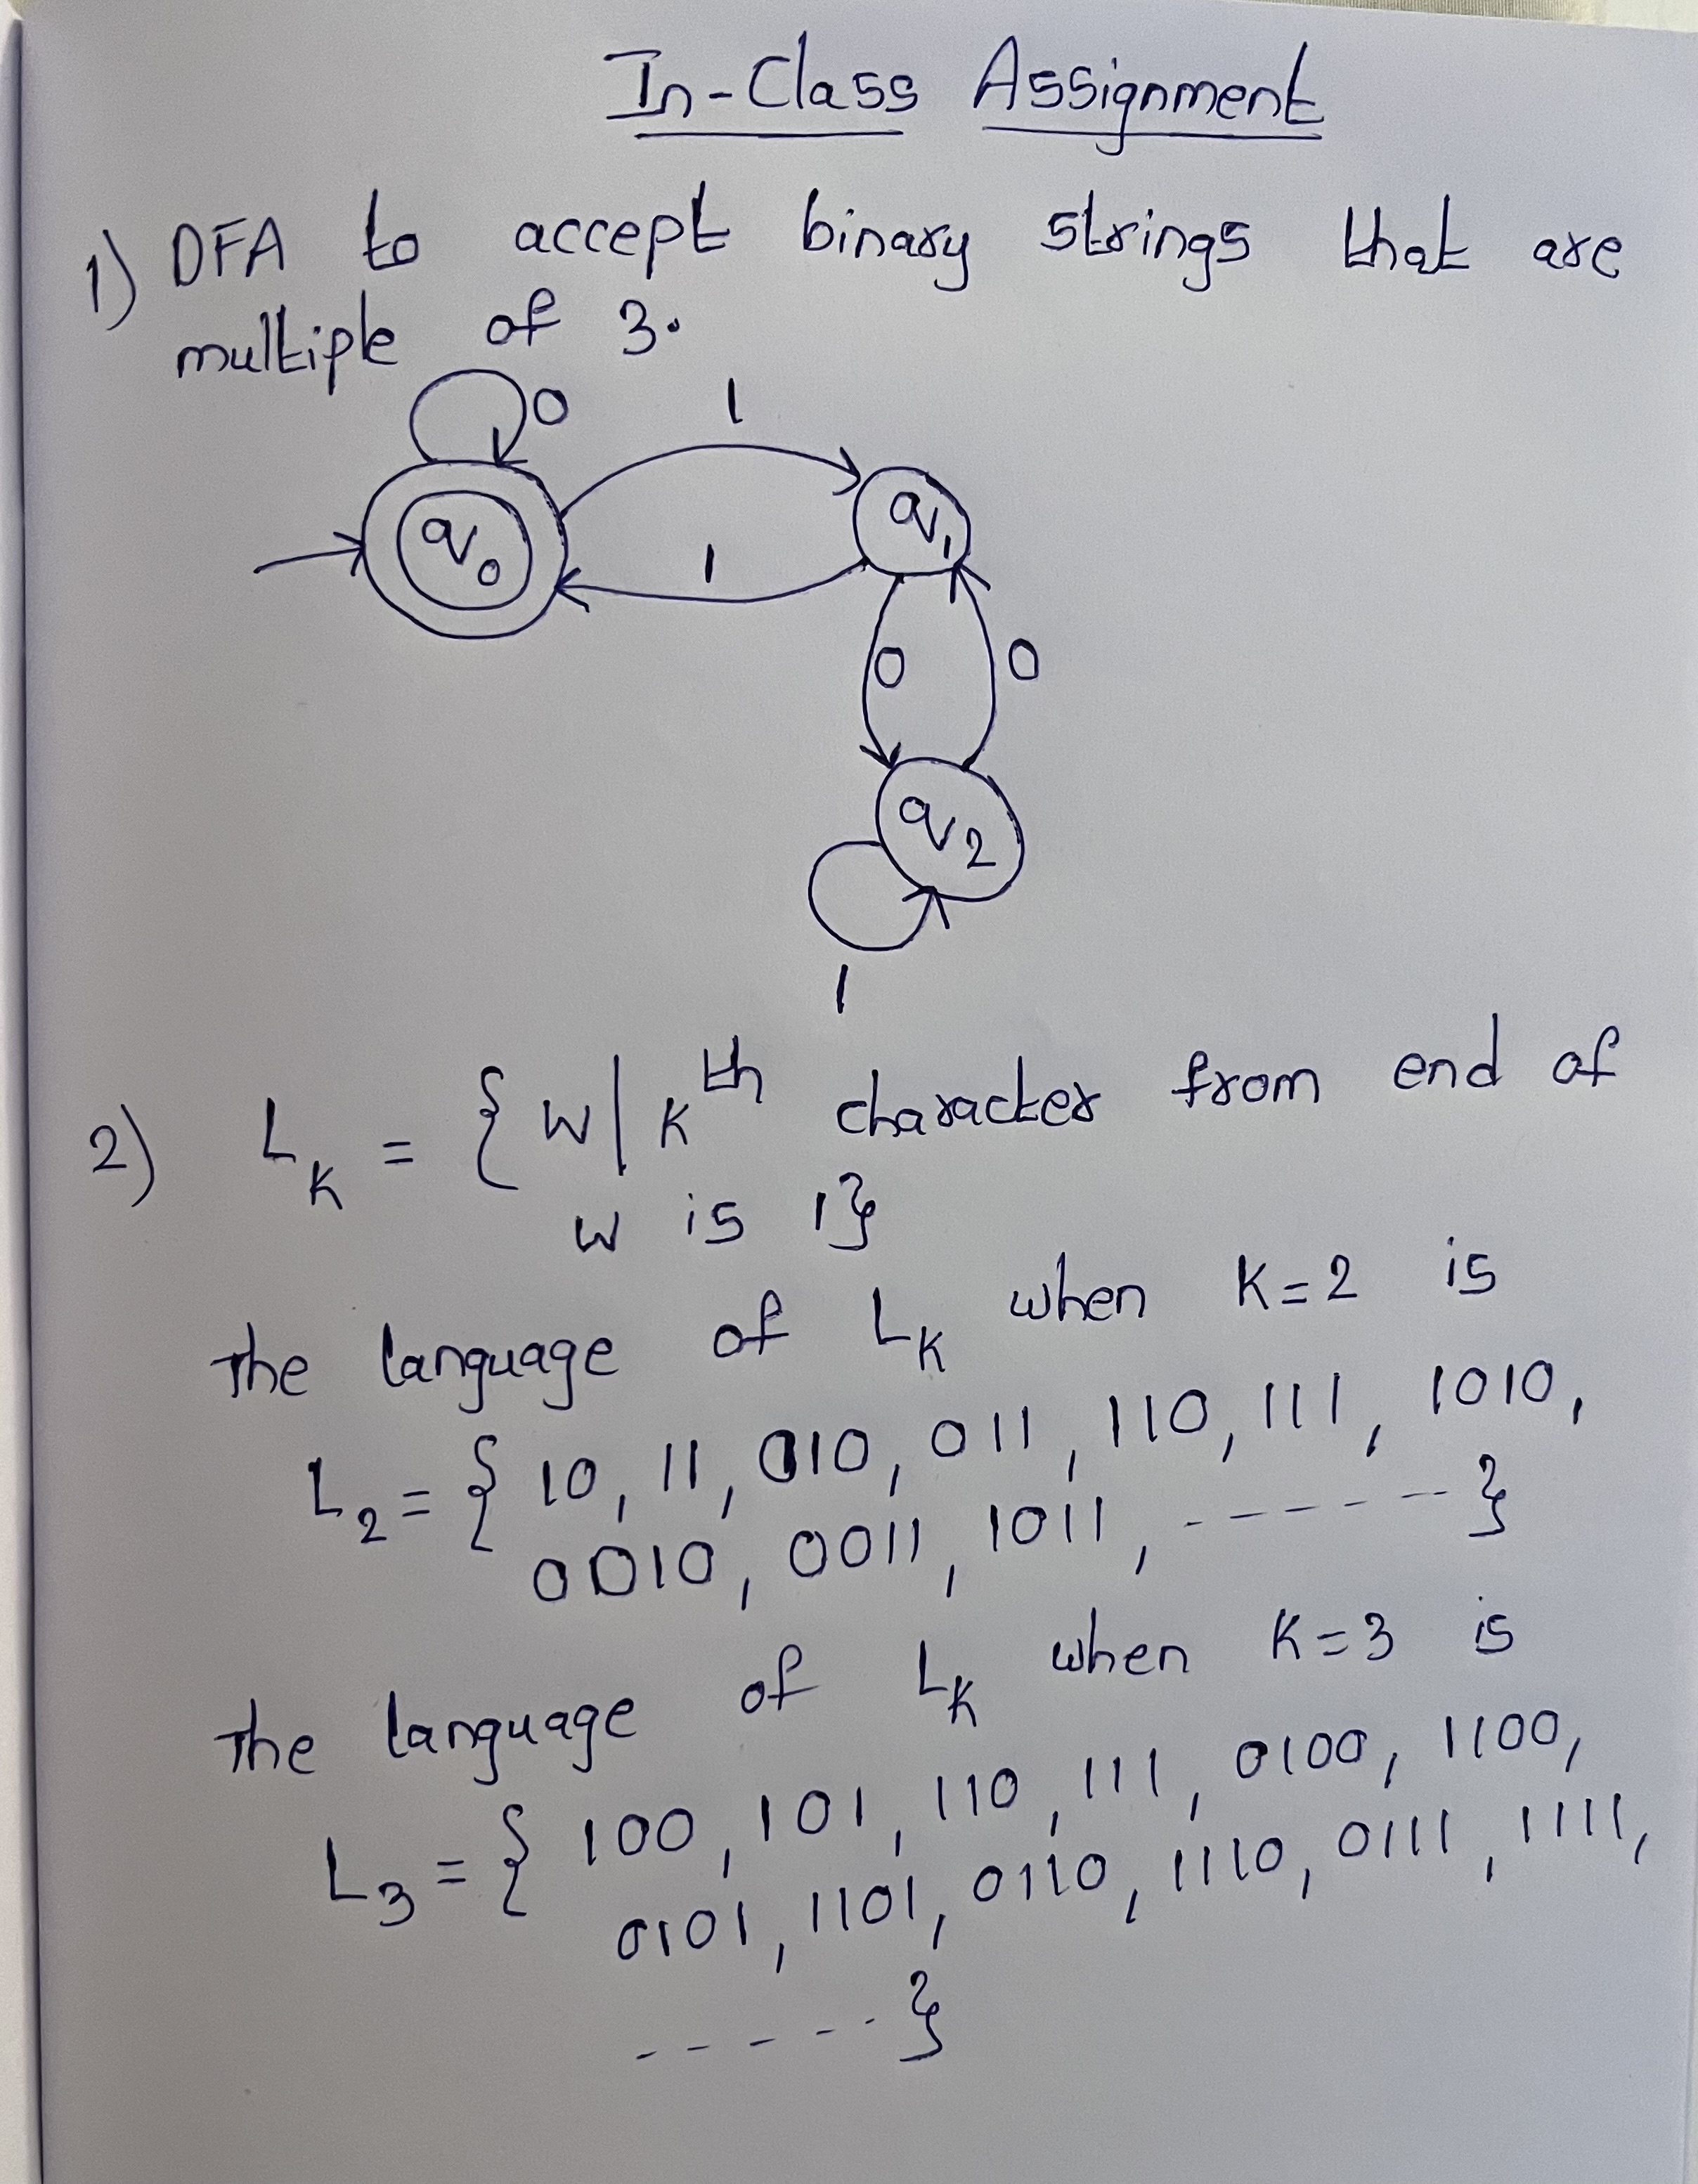 In-Class Assignment
1) DFA to accept binary strings that are
multiple of 3.
0
1
q0
q1
1
0
0
q2
1
2) LK = { W | Kth character from end of
W is 1}
The language of LK when K=2 is
L2 = { 10, 11, 010, 011, 110, 111, 1010,
0010, 0011, 1011, ------ }
The language of LK when K=3 is
L3 = { 100, 101, 110, 111, 0100, 1100,
0101, 1101, 0110, 1110, 0111, 1111,
----- }